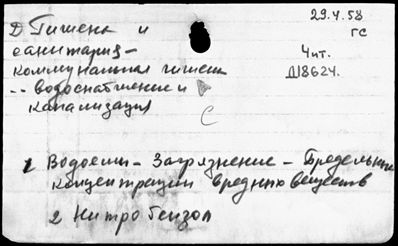 29.4.58
ГС
Д Гигиена и
санитария -
коммунальная гигиена
-- водоснабжение и
канализация
Чит.
Д18624.
С
1 Водоемы - Загрязнение - Предельные
концентрации вредных веществ
2 Нитробензол